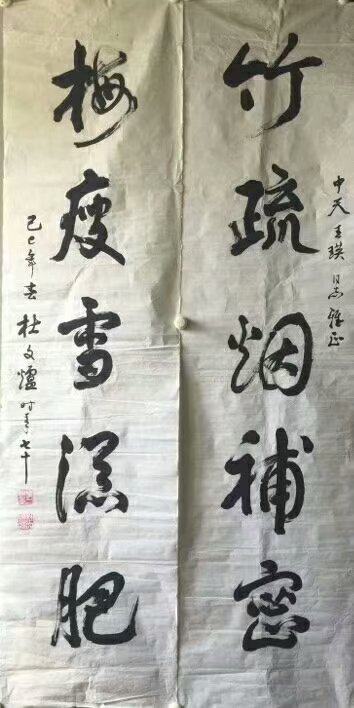 中天王瑛同志雅正
竹疏烟补密
梅瘦雪添肥
己巳年春杜文炉时年七十